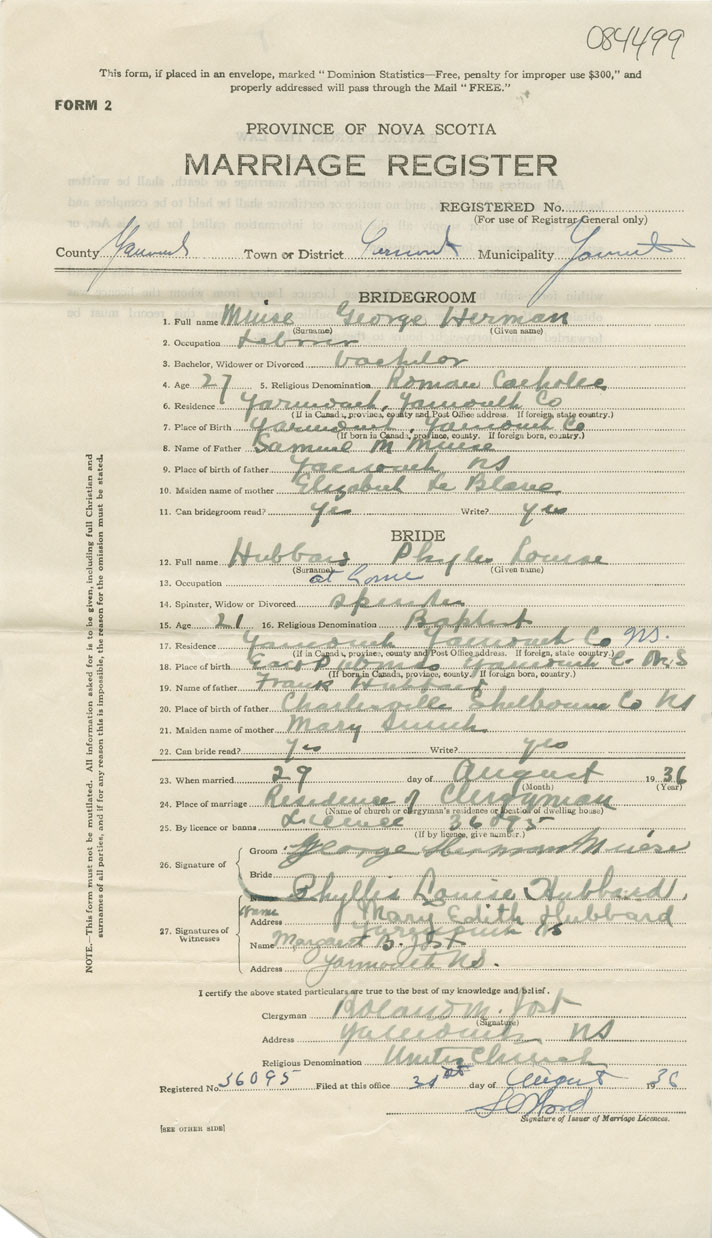 084499
This form, if placed in an envelope, marked "Dominion Statistics—Free, penalty for improper use $300," and
properly addressed will pass through the Mail "FREE."
FORM 2
PROVINCE OF NOVA SCOTIA
MARRIAGE REGISTER
REGISTERED No.
(For use of Registrar General only)
County Yarmouth Town or District Yarmouth Municipality Yarmouth
BRIDEGROOM
1. Full name Muise George Herman
(Surname) (Given name)
2. Occupation Laborer
3. Bachelor, Widower or Divorced bachelor
4. Age 27 5. Religious Denomination Roman Catholic
6. Residence Yarmouth, Yarmouth Co
(If in Canada, province, county and Post Office address. If foreign, state country.)
7. Place of Birth Yarmouth, Yarmouth Co
(If born in Canada, province, county. If foreign born, country.)
8. Name of Father Samuel M Muise
9. Place of birth of father Yarmouth NS
10. Maiden name of mother Elizabeth Le Blanc
11. Can bridegroom read? yes Write? yes
BRIDE
12. Full name Hubbard Phyllis Louise
(Surname) (Given name)
13. Occupation at home
14. Spinster, Widow or Divorced spinster
15. Age 21 16. Religious Denomination Baptist
17. Residence Yarmouth Yarmouth Co N.S.
(If in Canada, province, county and Post Office address. If foreign, state country.)
18. Place of birth East Pubnico Yarmouth Co N.S
(If born in Canada, province, county. If foreign born, country.)
19. Name of father Frank Hubbard
20. Place of birth of father Charlesville Shelbourne Co NS
21. Maiden name of mother Mary
22. Can bride read? yes Write? yes
23. When married 29 day of August 1936
(Month) (Year)
24. Place of marriage Residence of Clergyman
(Name of church or clergyman's residence or location of dwelling house)
25. By licence or banns Licence 36095
(If by licence, give number.)
26. Signature of Groom George Herman Muise
Bride
Phyllis Louise Hubbard.
27. Signatures of Witnesses Name Mary Edith Hubbard
Address Yarmouth NS
Name Margaret B. Jost
Address Yarmouth N.S.
NOTE.—This form must not be mutilated. All information asked for is to be given, including full Christian and
surnames of all parties, and if for any reason this is impossible, the reason for the omission must be stated.
I certify the above stated particulars are true to the best of my knowledge and belief.
Clergyman Roland M. Jost
(Signature)
Address Yarmouth NS
Religious Denomination United Church
Registered No. 36095 Filed at this office 31st day of August 1936
Signature of Issuer of Marriage Licences.
[SEE OTHER SIDE]